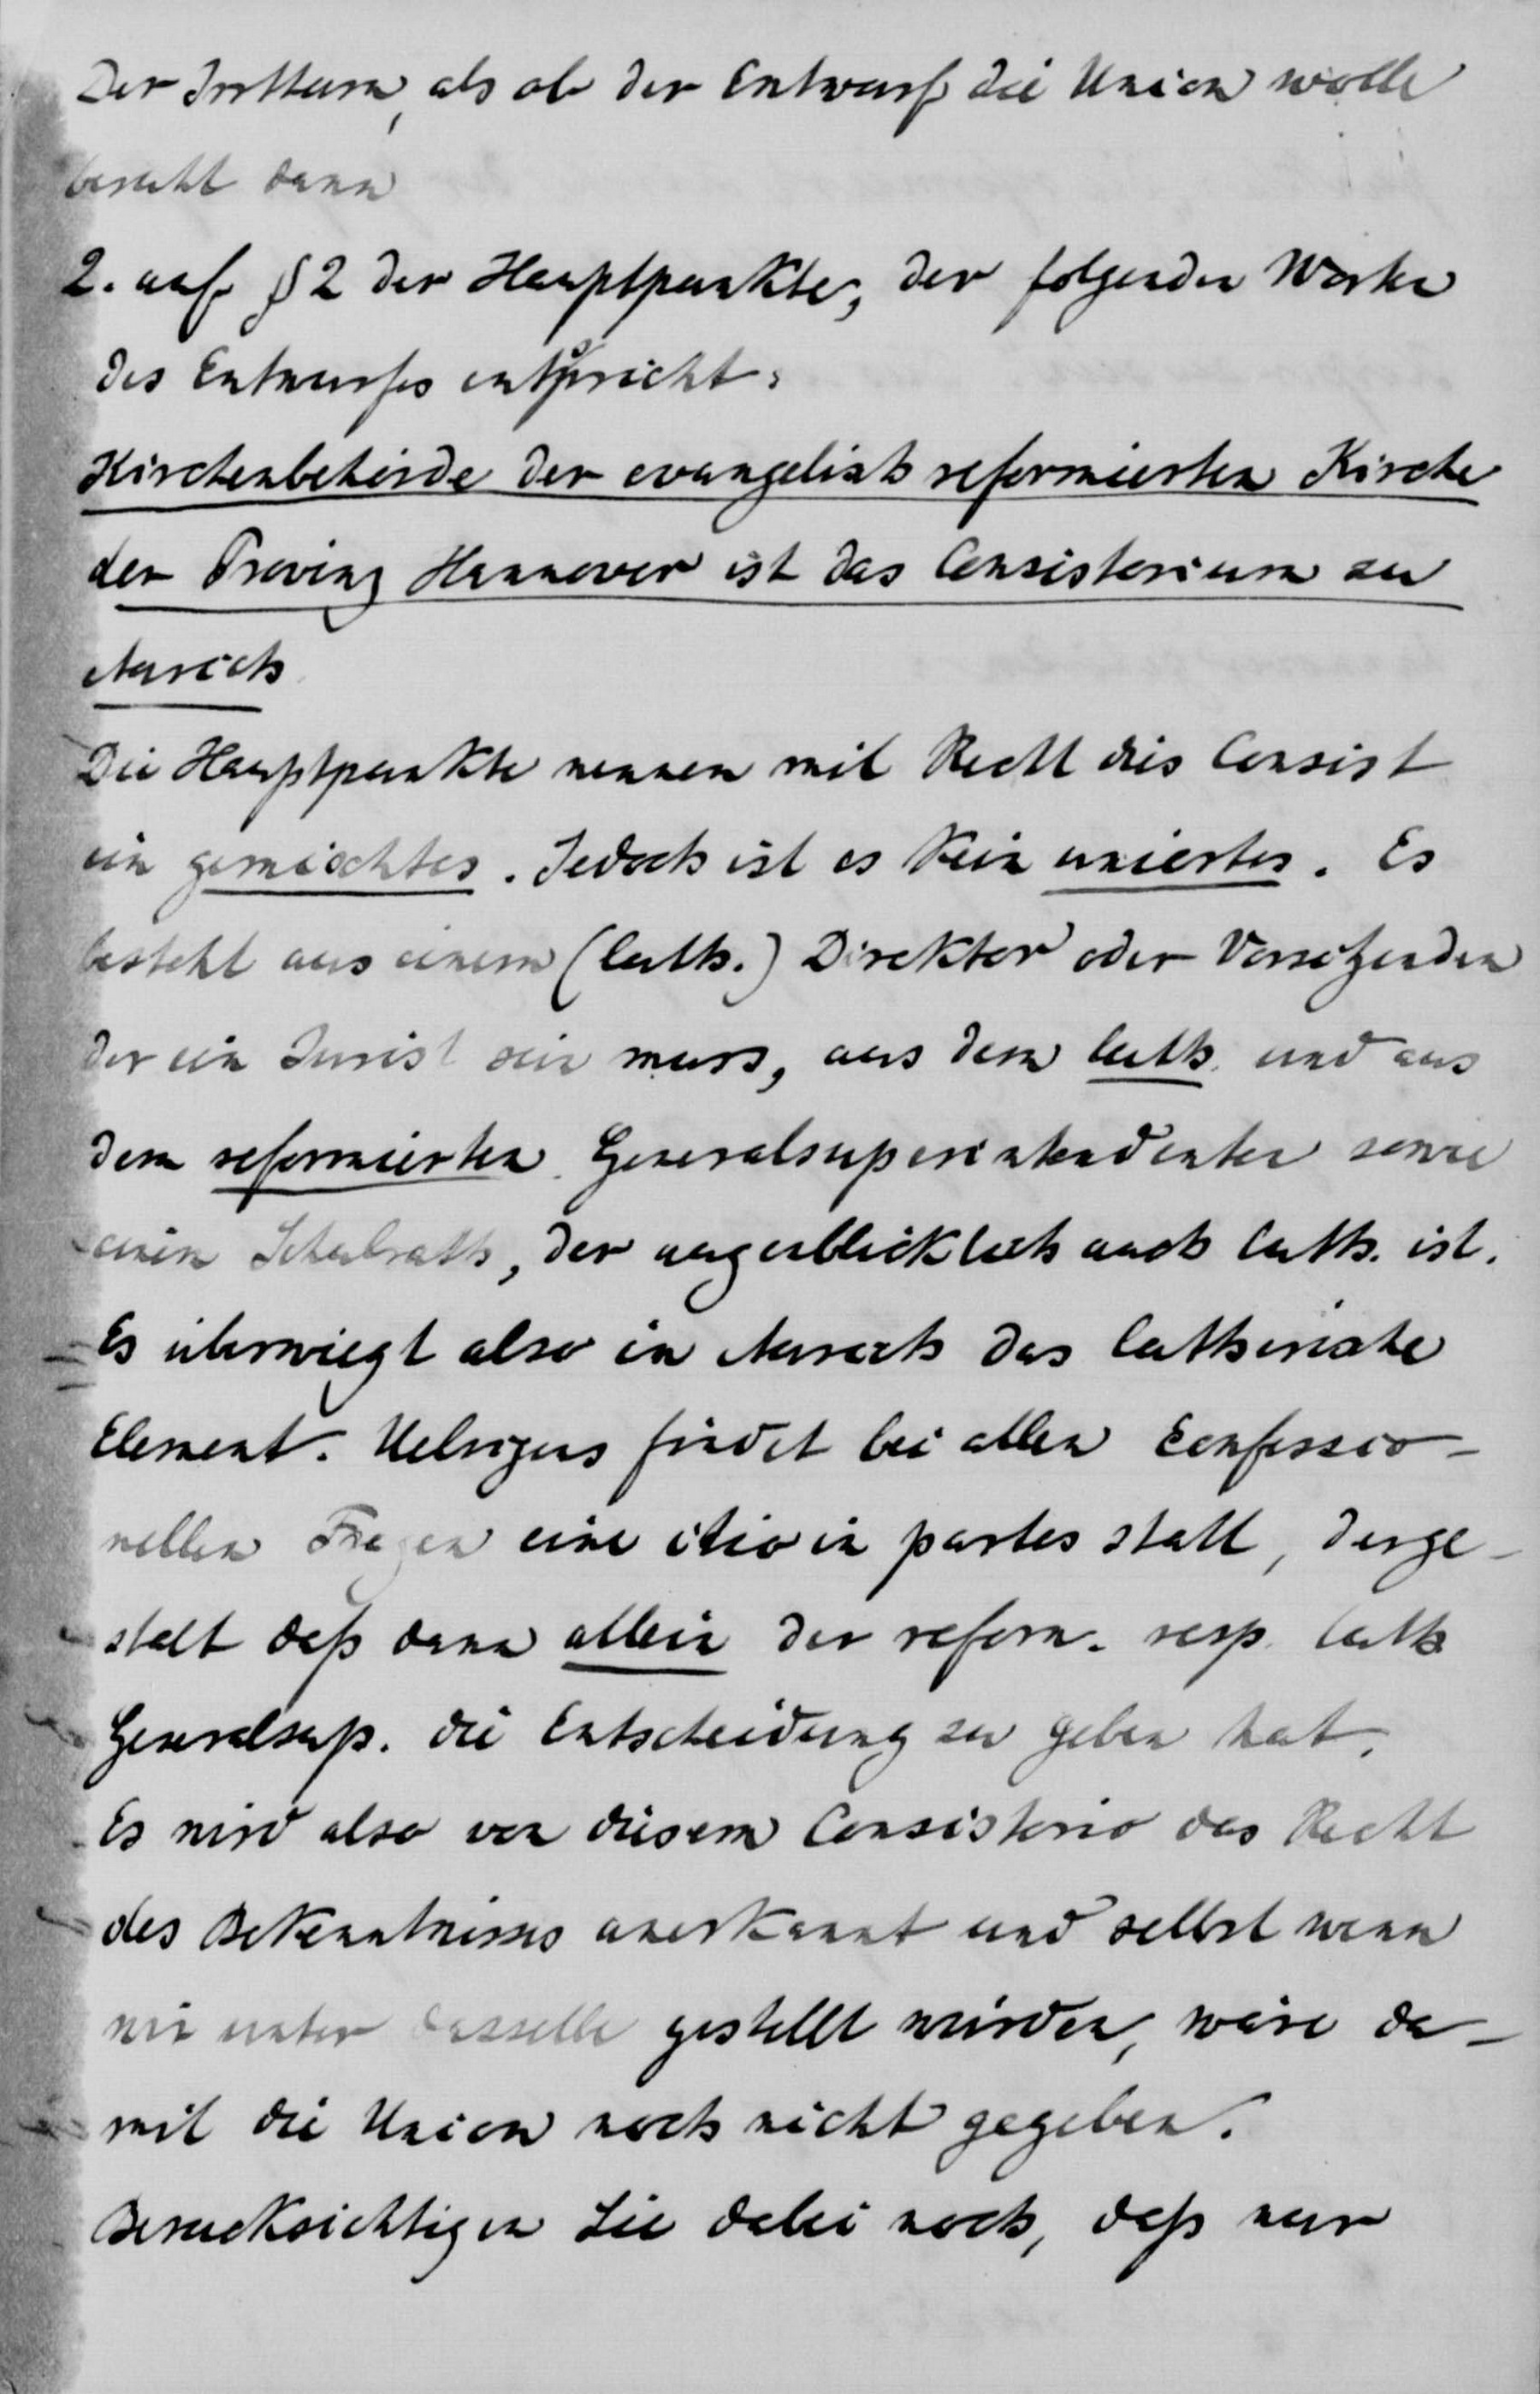 Der Irrttum, als ob der Entwurf die Union wolle
beruht dann
2. auf § 2 der Hauptpunkte, der folgenden Worten
des Entwurfes entspricht:
Kirchenbehörde der evangelisch reformierten Kirche
der Provinz Hannover ist das Consistorium zu
Aurich
Die Hauptpunkte nennen mit Recht dies Consist
ein gemischtes. Jedoch ist es kein uniertes. Es
besteht aus einem (luth.) Direktor oder Vorsitzenden
der ein Jurist sein muss, aus dem luth. und aus
dem reformierten Generalsuperintendenten sowie
einem Schulrath, der augenblicklich auch luth. ist.
Es überwiegt also in Aurich das lutherische
Element. Uebrigens findet bei allen confessio-
nellen Fragen eine itio in partes statt, derge-
stalt daß dann allein der reform. resp. luth
Generalsup. die Entscheidung zu geben hat.
Es wird also von diesem Consistorio das Recht
des Bekenntnisses anerkannt und selbst wenn
wir unter dasselbe gestellt würden, wäre da-
mit die Union noch nicht gegeben.
Berücksichtigen Sie dabei noch, daß nur